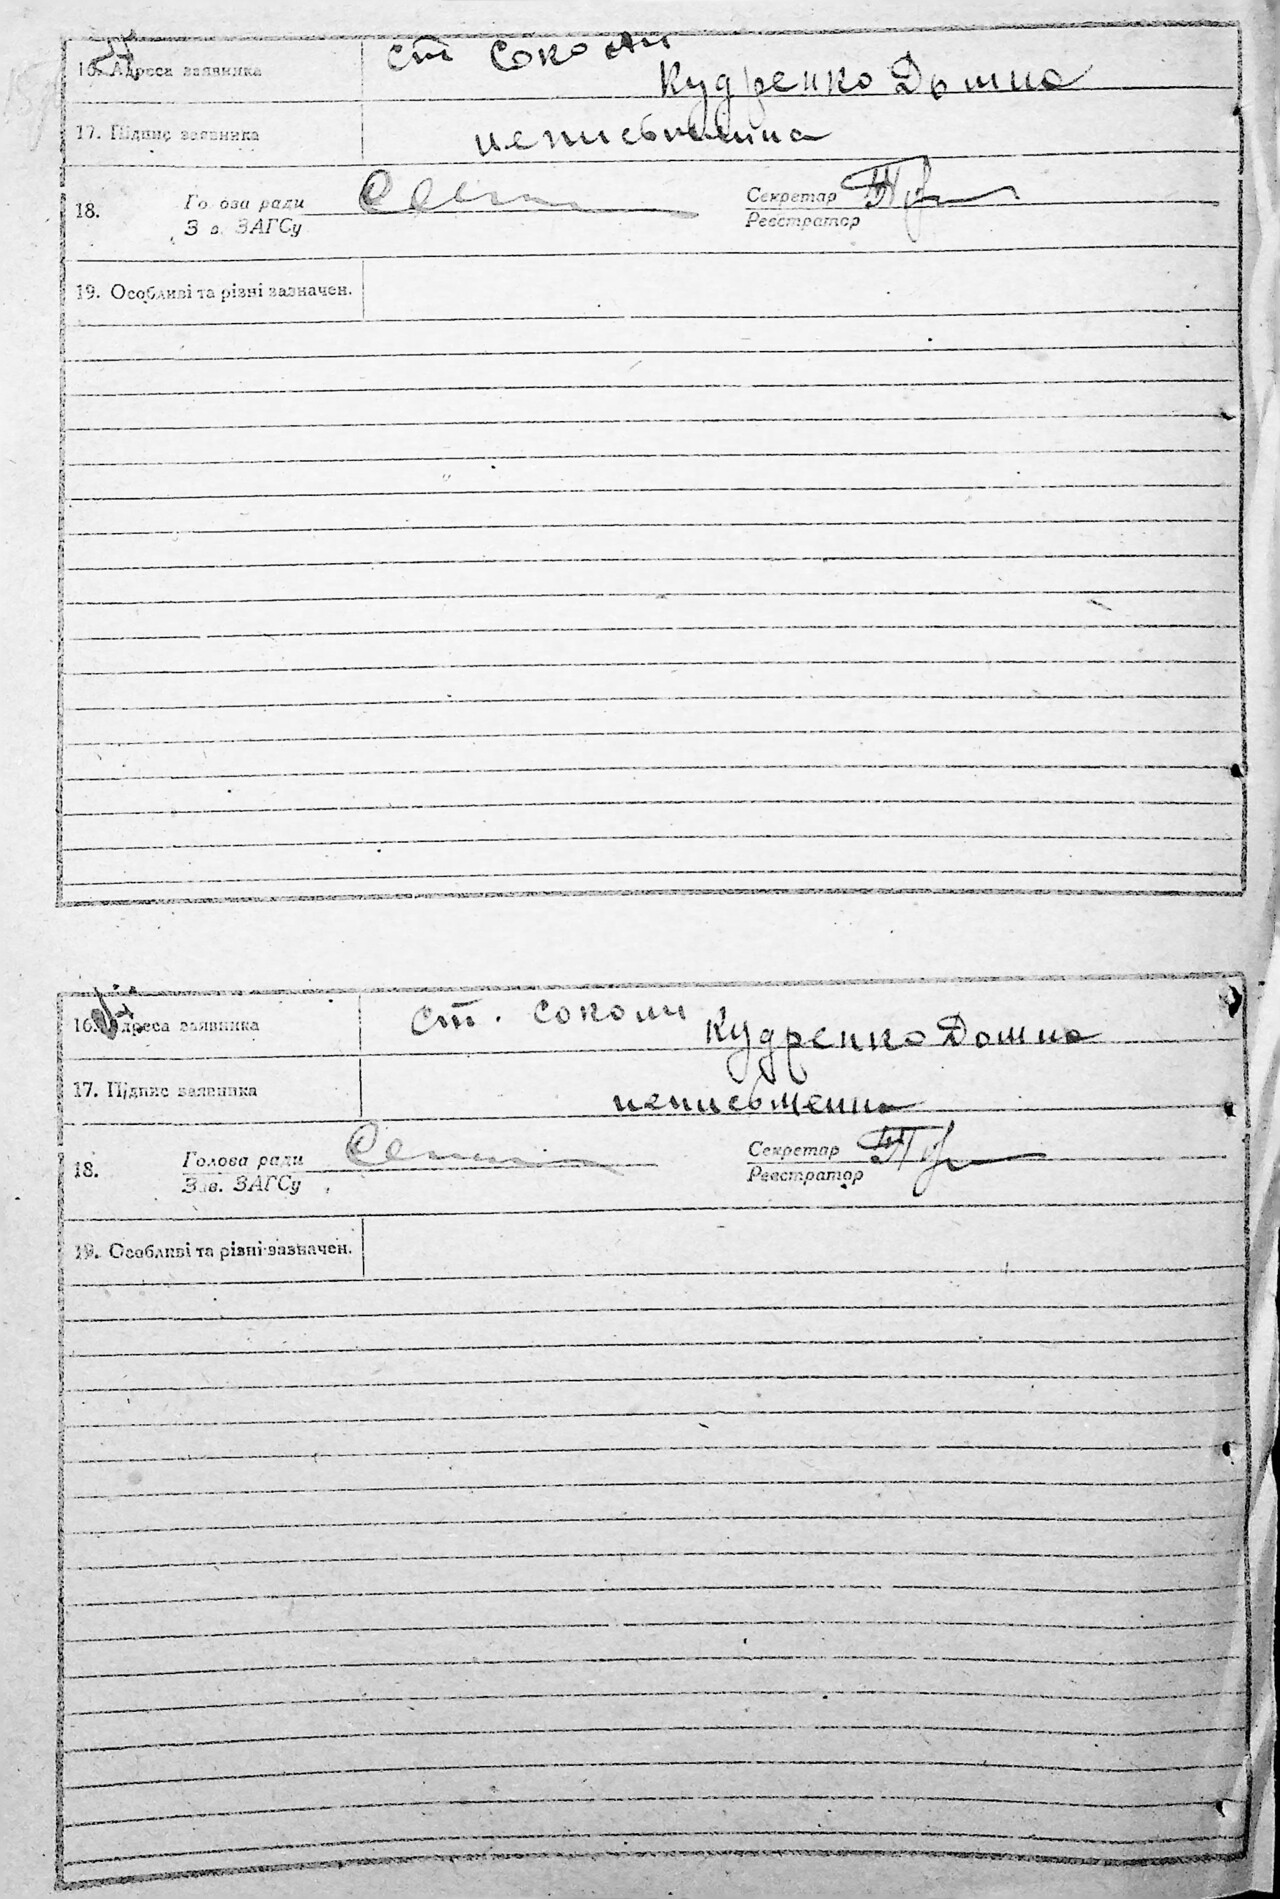 16. Адреса заявника ст Соколи
Кудренко Домна
17. Підпис заявника неписьменна
18. Голова ради Секретар
Зав. ЗАГСу Реєстратор
19. Особливі та різні зазначен.
16. Адреса заявника ст. Соколи
Кудренко Домна
17. Підпис заявника неписьменна
18. Голова ради Секретар
Зав. ЗАГСу Реєстратор
19. Особливі та різні зазначен.